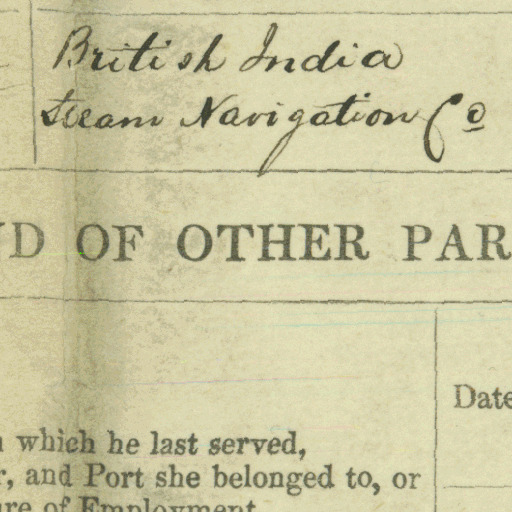 British India
Steam Navigation Co
D OF OTHER PAR
Date
which he last served,
r, and Port she belonged to, or
ure of Employment